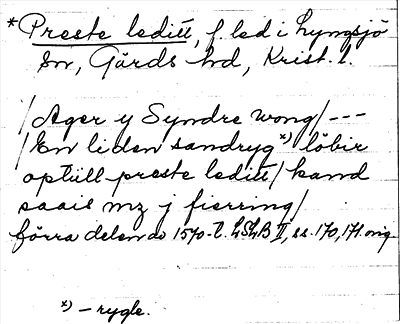 *Preste leditt, f. led i Lyngsjö
sn, Gärds hd, Krist. l.
/Ager y Syndre wong/ ---
/En liden sandryg *) löbir
optill preste leditt/ kand
saais mz j fierring/
förra delen av 1570-t. LSLB II, ss. 170, 171 orig.
*) – rygle.